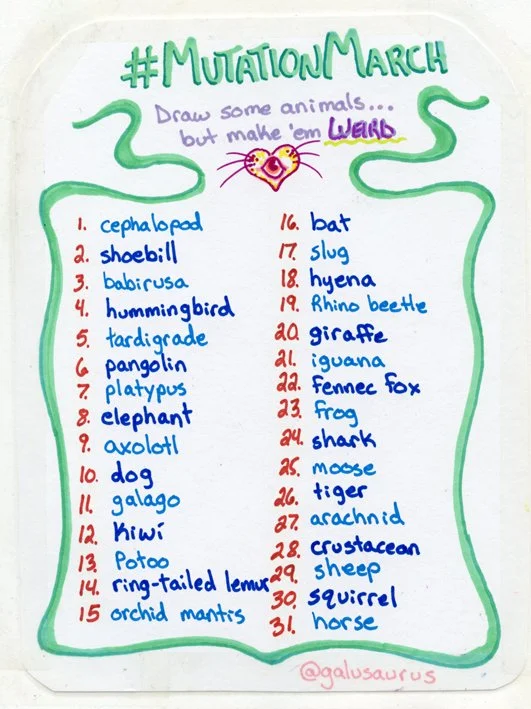 #MUTATIONMARCH
Draw some animals...
but make 'em WEIRD
1. cephalopod
2. shoebill
3. babirusa
4. hummingbird
5. tardigrade
6 pangolin
7. platypus
8. elephant
9. axolotl
10. dog
11. galago
12. Kiwi
13. Potoo
14. ring-tailed lemur
15 orchid mantis
16. bat
17. slug
18. hyena
19. Rhino beetle
20. giraffe
21. iguana
22. fennec fox
23. frog
24. shark
25. moose
26. tiger
27. arachnid
28. crustacean
29. sheep
30. squirrel
31. horse
@galusaurus